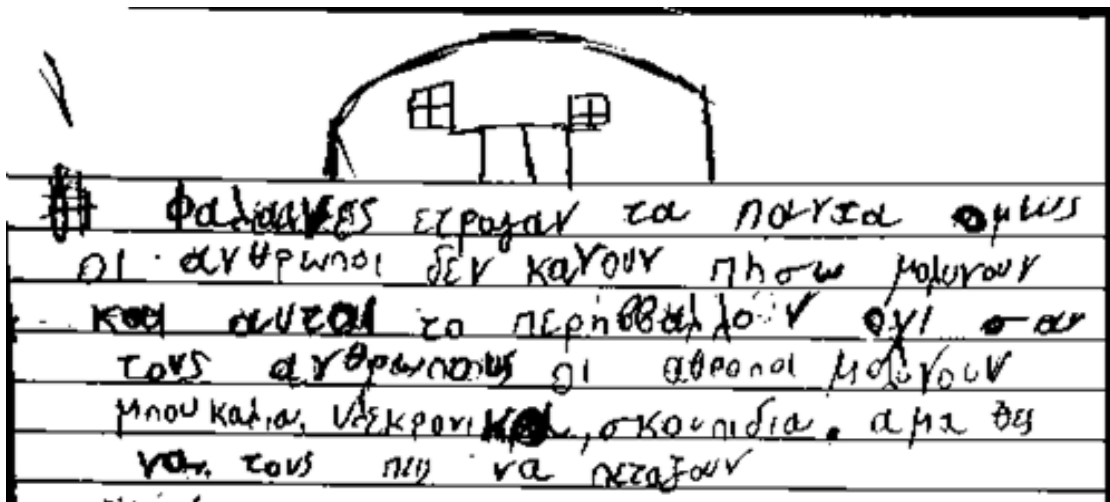 φαλιανες ετρογαν τα παντα ομως
οι ανθρωποι δεν κανουν πησω μολυνουν
και αυται το περηββαλλουν οχι σαν
τους ανθρωπους οι αθροποι μολυνουν
μπουκαλια, , σκουπιδια. αμα θες
να τους πεις να πεταξουν